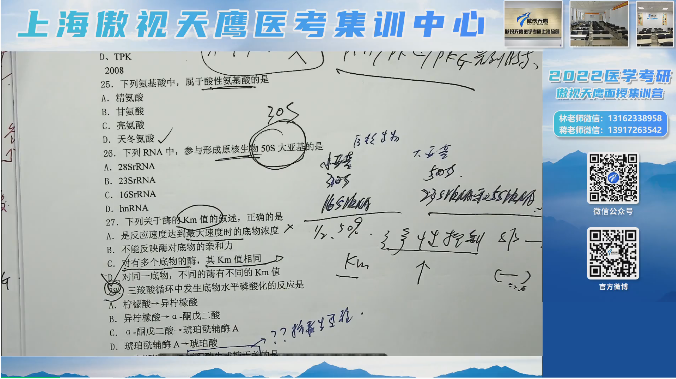 上海傲视天鹰医考集训中心
D、TPK
2008
25．下列氨基酸中，属于酸性氨基酸的是
A．精氨酸
B．甘氨酸
C．亮氨酸
D．天冬氨酸
26．下列 RNA 中，参与形成原核生物 50S 大亚基的是
A．28SrRNA
B．23SrRNA
C．16SrRNA
D．hnRNA
27．下列关于酶的 Km 值的叙述，正确的是
A．是反应速度达到最大速度时的底物浓度
B．不能反映酶对底物的亲和力
C．对有多个底物的酶，其 Km 值相同
D．对同一底物，不同的酶有不同的 Km 值
三羧酸循环中发生底物水平磷酸化的反应是
A．柠檬酸→异柠檬酸
B．异柠檬酸→α-酮戊二酸
C．α-酮戊二酸→琥珀酰辅酶 A
D．琥珀酰辅酶 A→琥珀酸
30S
原核生物
小亚基
大亚基
30S
50S
16SrRNA
½ 50%
竞争性抑制
Km
↑
(一)
2022医学考研
傲视天鹰面授集训营
林老师微信：13162338958
蒋老师微信：13917263542
微信公众号
官方微博